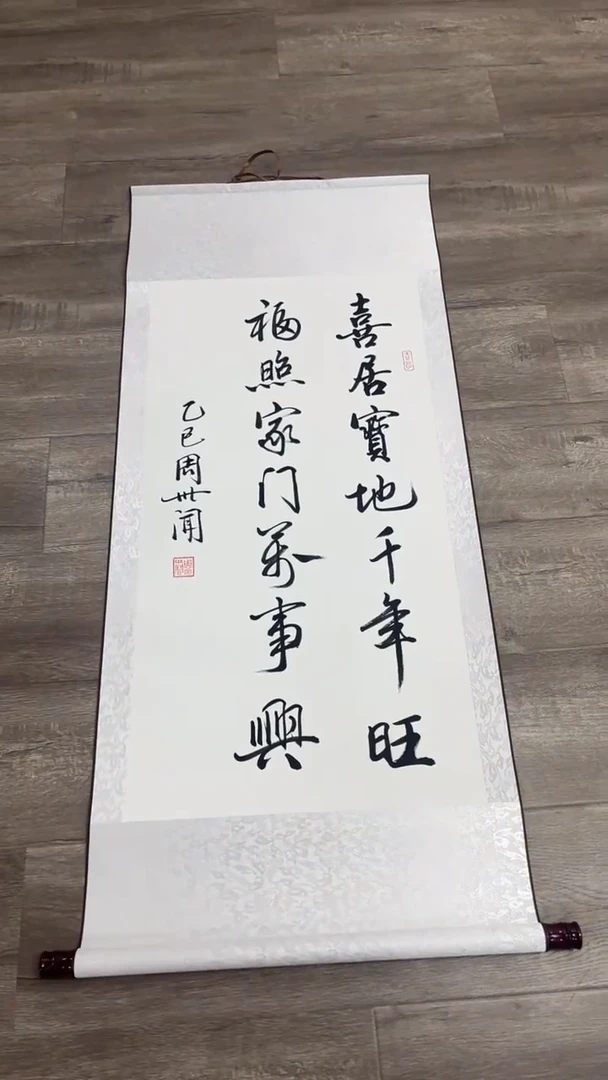 喜居寶地千年旺
福照家门萬事興
乙巳周世闻